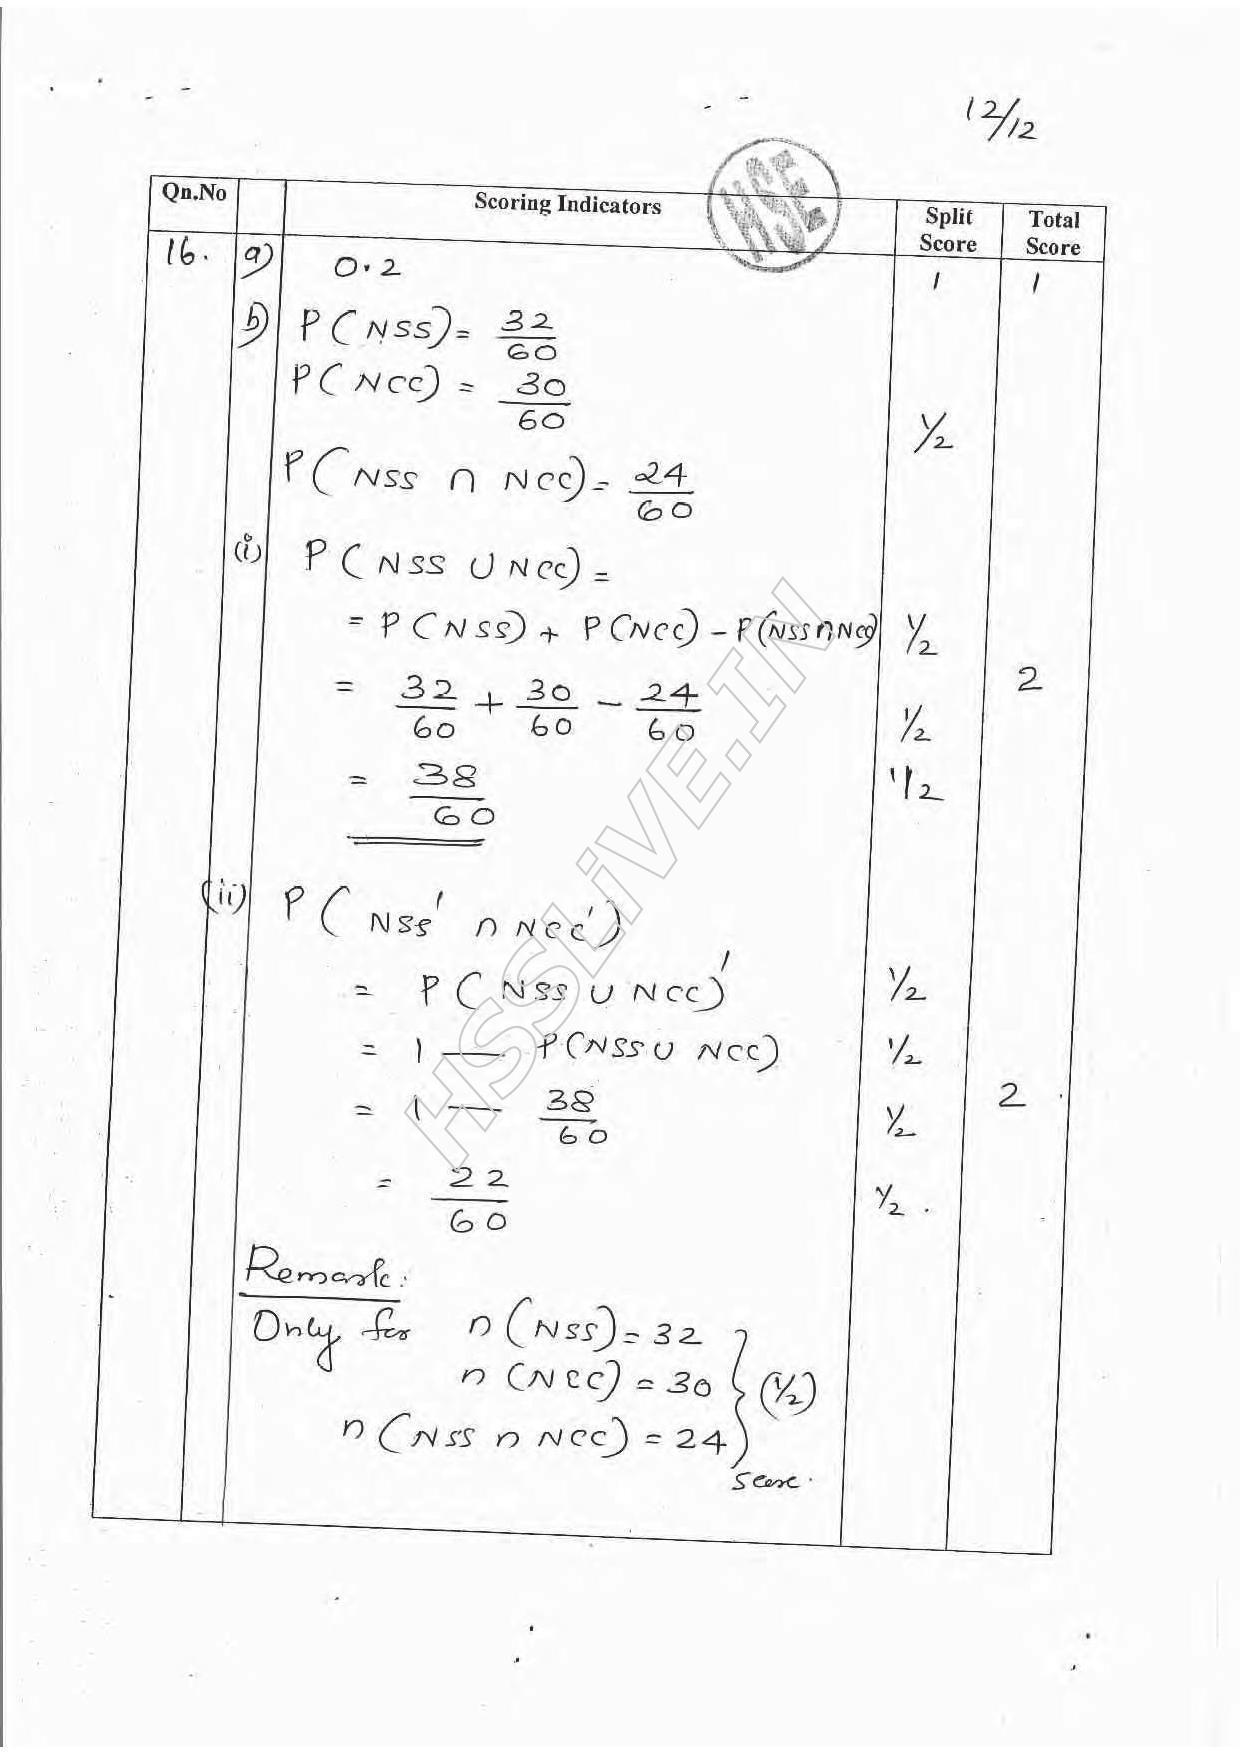 12/12
HSE
Qn.No Scoring Indicators Split Score Total Score
16. a) 0.2 1 1
b) P(NSS) = 32/60
P(NCC) = 30/60
1/2
P(NSS ∩ NCC) = 24/60
(i) P(NSS ∪ NCC) =
= P(NSS) + P(NCC) - P(NSS ∩ NCC) 1/2
2
= 32/60 + 30/60 - 24/60 1/2
= 38/60 1/2
(ii) P(NSS' ∩ NCC')
= P(NSS ∪ NCC)' 1/2
= 1 — P(NSS ∪ NCC) 1/2
2
= 1 — 38/60 1/2
= 22/60 1/2.
Remark:
Only for n(NSS) = 32
n(NCC) = 30 } (1/2)
n(NSS ∩ NCC) = 24
Score.
HSSLiVE.IN